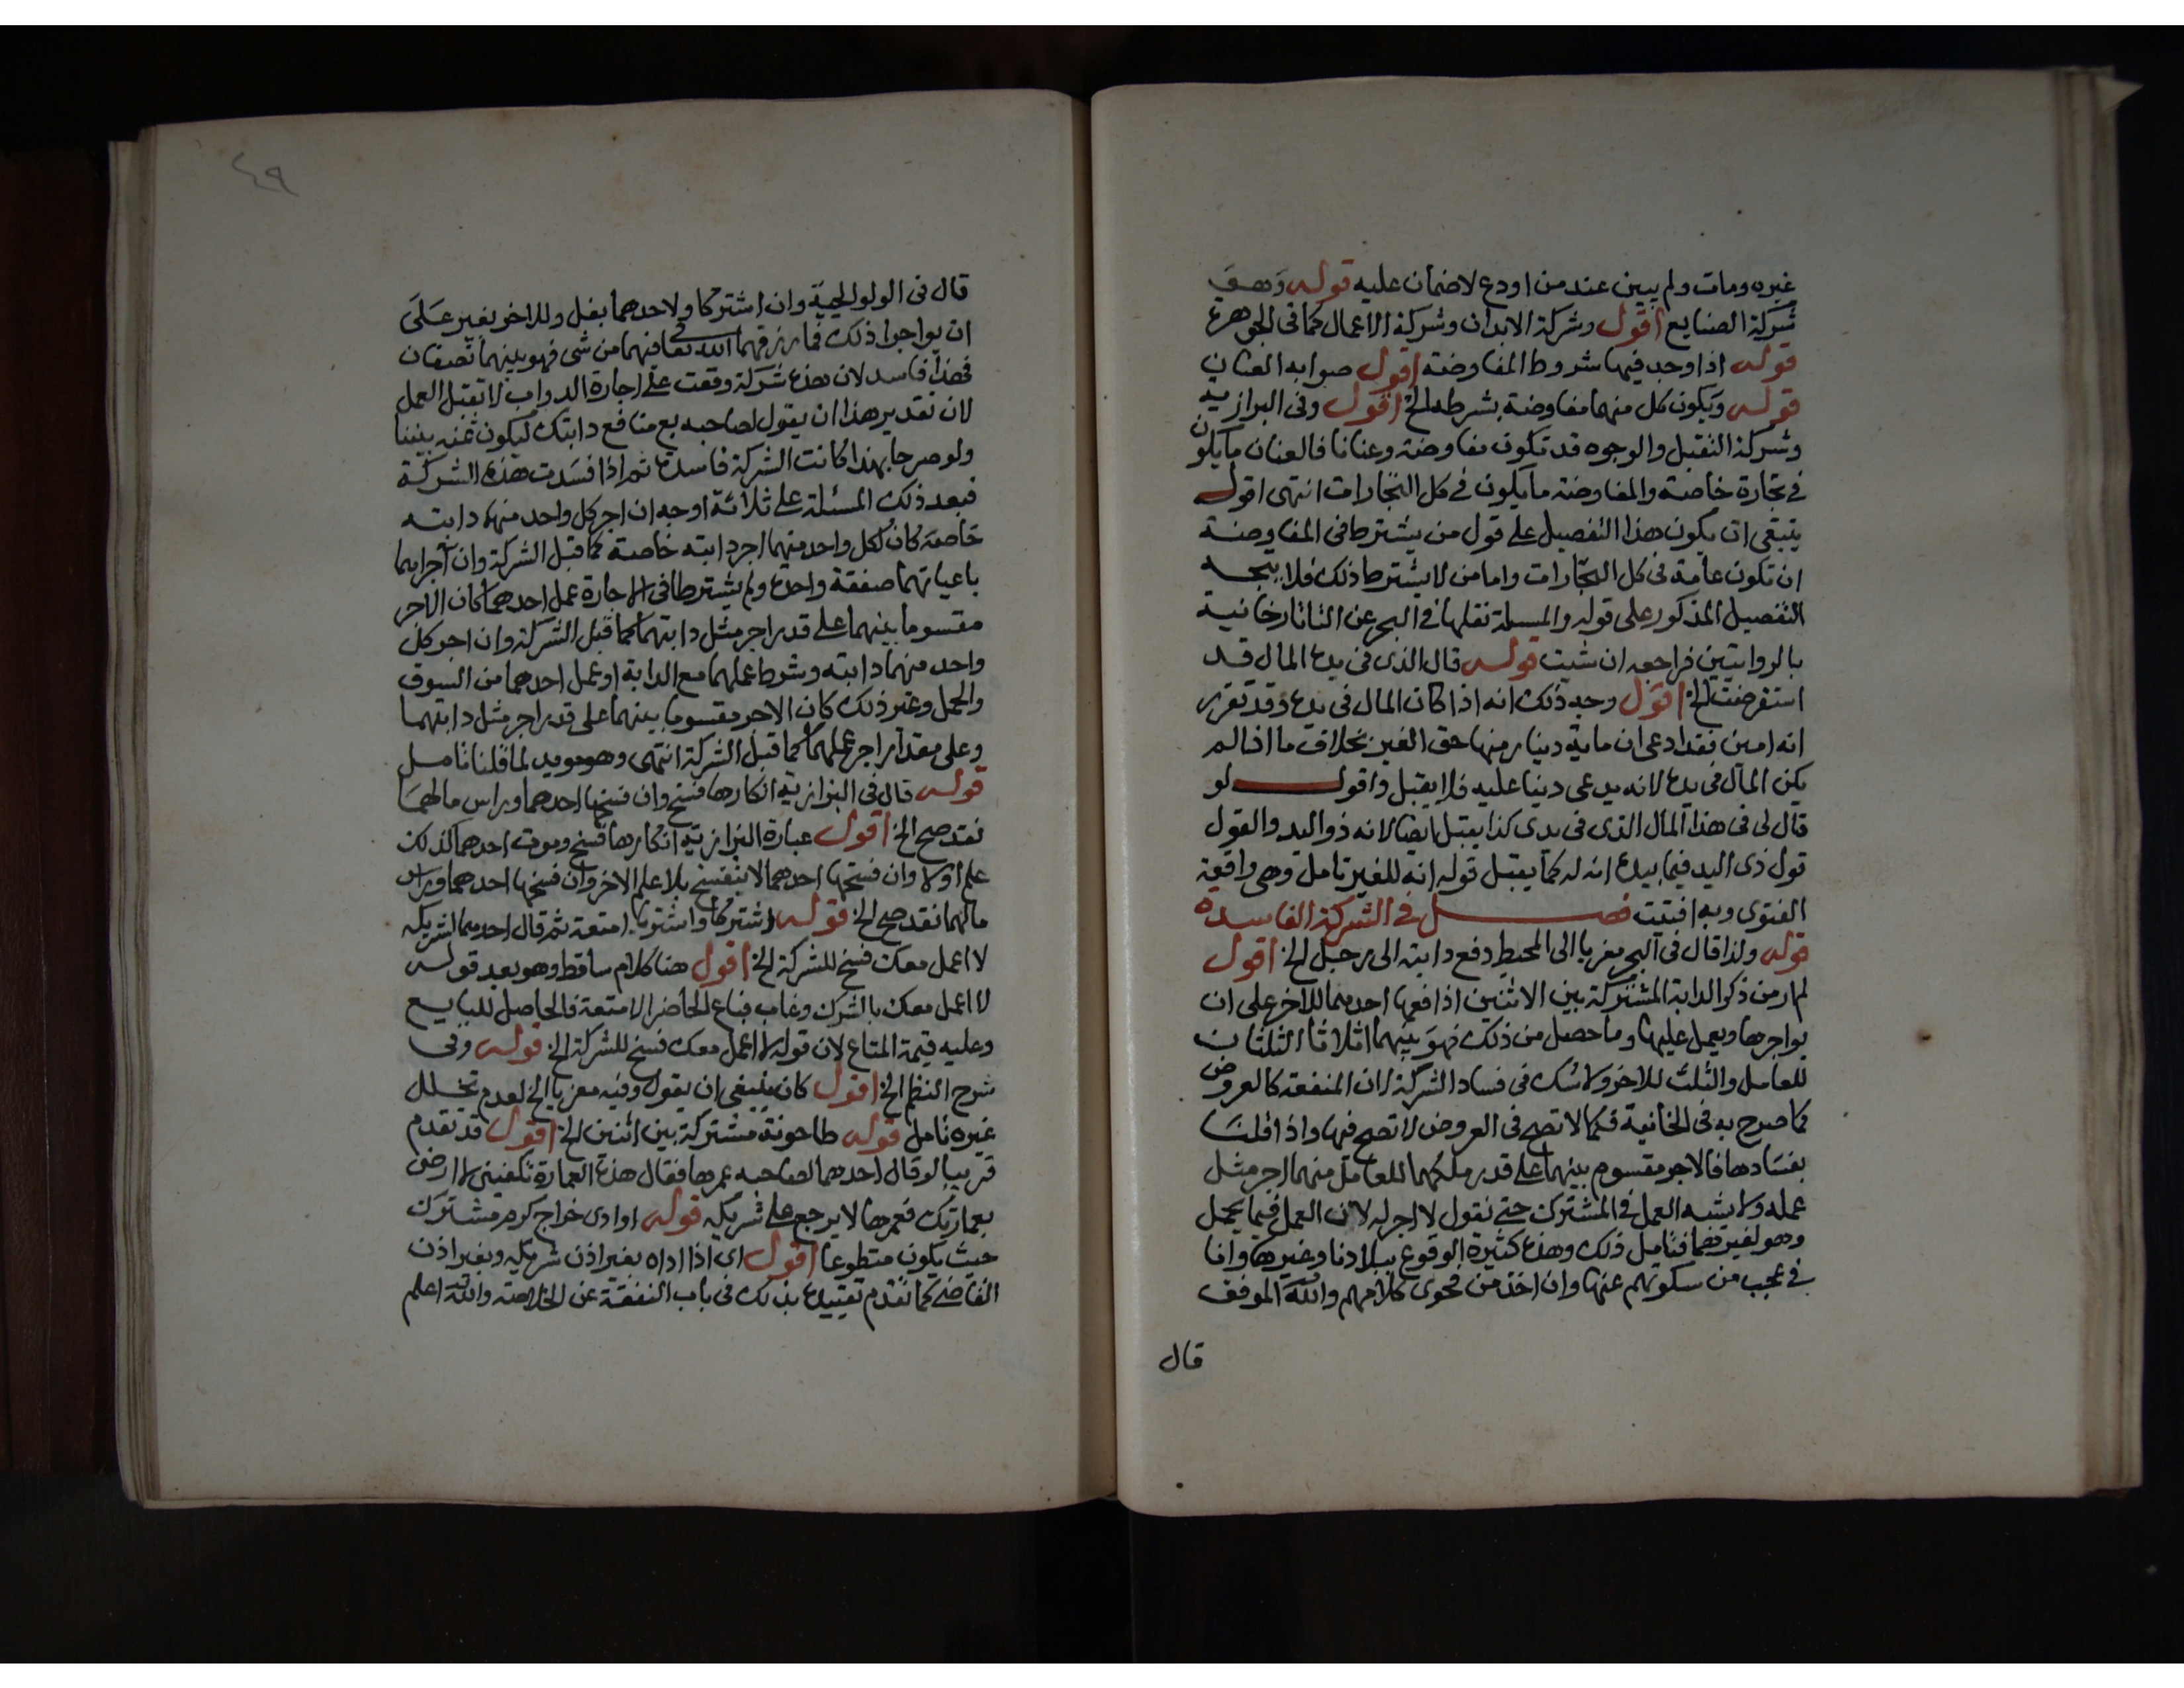 غيره ومات ولم يبين عند من اودع لاضمان عليه قوله وهي
شركة الصنايع اقول وشركة الابدان وشركة الاعمال كما في الجوهرة
قوله اذا وجد فيها شروط المفاوضة اقول صوابه العنان
قوله ويكون كل منهما مفاوضة بشرطه الخ اقول وفي البزازية
وشركة التقبل والوجوه قد تكون مفاوضة وعنانا فالعنان ما يكون
في تجارة خاصة والمفاوضة ما يكون في كل التجارات انتهى اقول
ينبغي ان يكون هذا التفصيل على قول من يشترط في المفاوضة
ان تكون عامة في كل التجارات واما من لا يشترط ذلك فلا يتجه
التفصيل المذكور على قوله والمسلة نقلها في البحر عن التاتارخانية
بالروايتين فراجعه ان شيت قوله قال الذي في يده المال قد
استقرضت الخ اقول وجه ذلك انه اذا كان المال في يده وقد تقرر
انه امين فقد ادعى ان ماية دينار منها حق الغير بخلاف ما اذا لم
يكن المال في يده لانه يدعي دينا عليه فلا يقبل واقول لو
قال لي في هذا المال الذي في يدي كذا يقبل ايضا لانه ذو اليد والقول
قول ذي اليد فيما بيده انه له كما يقبل قوله انه للغير تامل وهي واقعة
الفتوى وبه افتيت فصل في الشركة الفاسدة
قوله ولذا قال في البحر معزيا الى المحيط دفع دابته الى رجل الخ اقول
لم ار من ذكر الدابة المشتركة بين الاثنين اذا دفعها احدهما للاخر على ان
يواجرها ويعمل عليها وما حصل من ذلك فهو بينهما اثلاثا الثلثان
للعامل والثلث للاخر ولا شك في فساد الشركة لان المنفعة كالعروض
كما صرح به في الخانية فكما لا تصح في العروض لا تصح فيها واذا قلنا
بفسادها فالاجر مقسوم بينهما على قدر ملكهما للعامل منهما اجر مثل
عمله ولا يشبه العمل في المشترك حتى نقول لا اجر له لان العمل فيما يحمل
وهو لغيرهما فتامل ذلك وهذه كثيرة الوقوع ببلادنا وغيرها وانا
في عجب من سكوتهم عنها وان اخذ من فحوى كلامهم والله الموفق
قال
٤٩
قال في الولوالجية وان اشتركا ولاحدهما بغل وللاخر بعير على
ان يواجرا ذلك فما رزقهما الله تعا فيهما من شي فهو بينهما نصفان
فهذا فاسد لان هذه شركة وقعت على اجارة الدواب لا تقبل العمل
لان تقدير هذا ان يقول لصاحبه بع منافع دابتك ليكون ثمنه بيننا
ولو صرحا بهذا كانت الشركة فاسدة ثم اذا فسدت هذه الشركة
فبعد ذلك المسئلة على ثلاثة اوجه ان اجر كل واحد منهما دابته
خاصة كان لكل واحد منهما اجر دابته خاصة كما قبل الشركة وان آجراهما
باعيانهما صفقة واحدة ولم يشترطا في الاجارة عمل احدهما كان الاجر
مقسوما بينهما على قدر اجر مثل دابتهما كما قبل الشركة وان اجر كل
واحد منهما دابته وشرط عملهما مع الدابة او عمل احدهما من السوق
والحمل وغير ذلك كان الاجر مقسوما بينهما على قدر اجر مثل دابتهما
وعلى مقدار اجر عملهما كما قبل الشركة انتهى وهو مويد لما قلنا تامل
قوله قال في البزازية انكارها فسخ وان فسخها احدهما وراس مالهما
نقد صح الخ اقول عبارة البزازية انكارها فسخ وموت احدهما كذلك
علم اولا وان فسخها احدهما لا تنفسخ بلا علم الاخر وان فسخها احدهما وراس
مالهما نقد صح الخ قوله اشتركا واشتريا امتعة ثم قال احدهما لشريكه
لا اعمل معك فسخ للشركة الخ اقول هنا كلام ساقط وهو بعد قوله
لا اعمل معك بالشرك وغاب فباع الحاضر الامتعة فالحاصل للبايع
وعليه قيمة المتاع لان قوله لا اعمل معك فسخ للشركة الخ قوله وفي
شرح النظم الخ اقول كان ينبغي ان يقول وفيه معزيا الخ لعدم تخلل
غيره تامل قوله طاحونة مشتركة بين اثنين الخ اقول قد تقدم
قريبا لو قال احدهما لصاحبه عمرها فقال هذه العمارة تكفيني لا ارضى
بعمارتك فعمرها لا يرجع على شريكه قوله او ادى خراج كرم مشترك
حيث يكون متطوعا اقول اي اذا اداه بغير اذن شريكه وبغير اذن
القاضي كما تقدم تقييده بذلك في باب النفقة عن الخلاصة والله اعلم